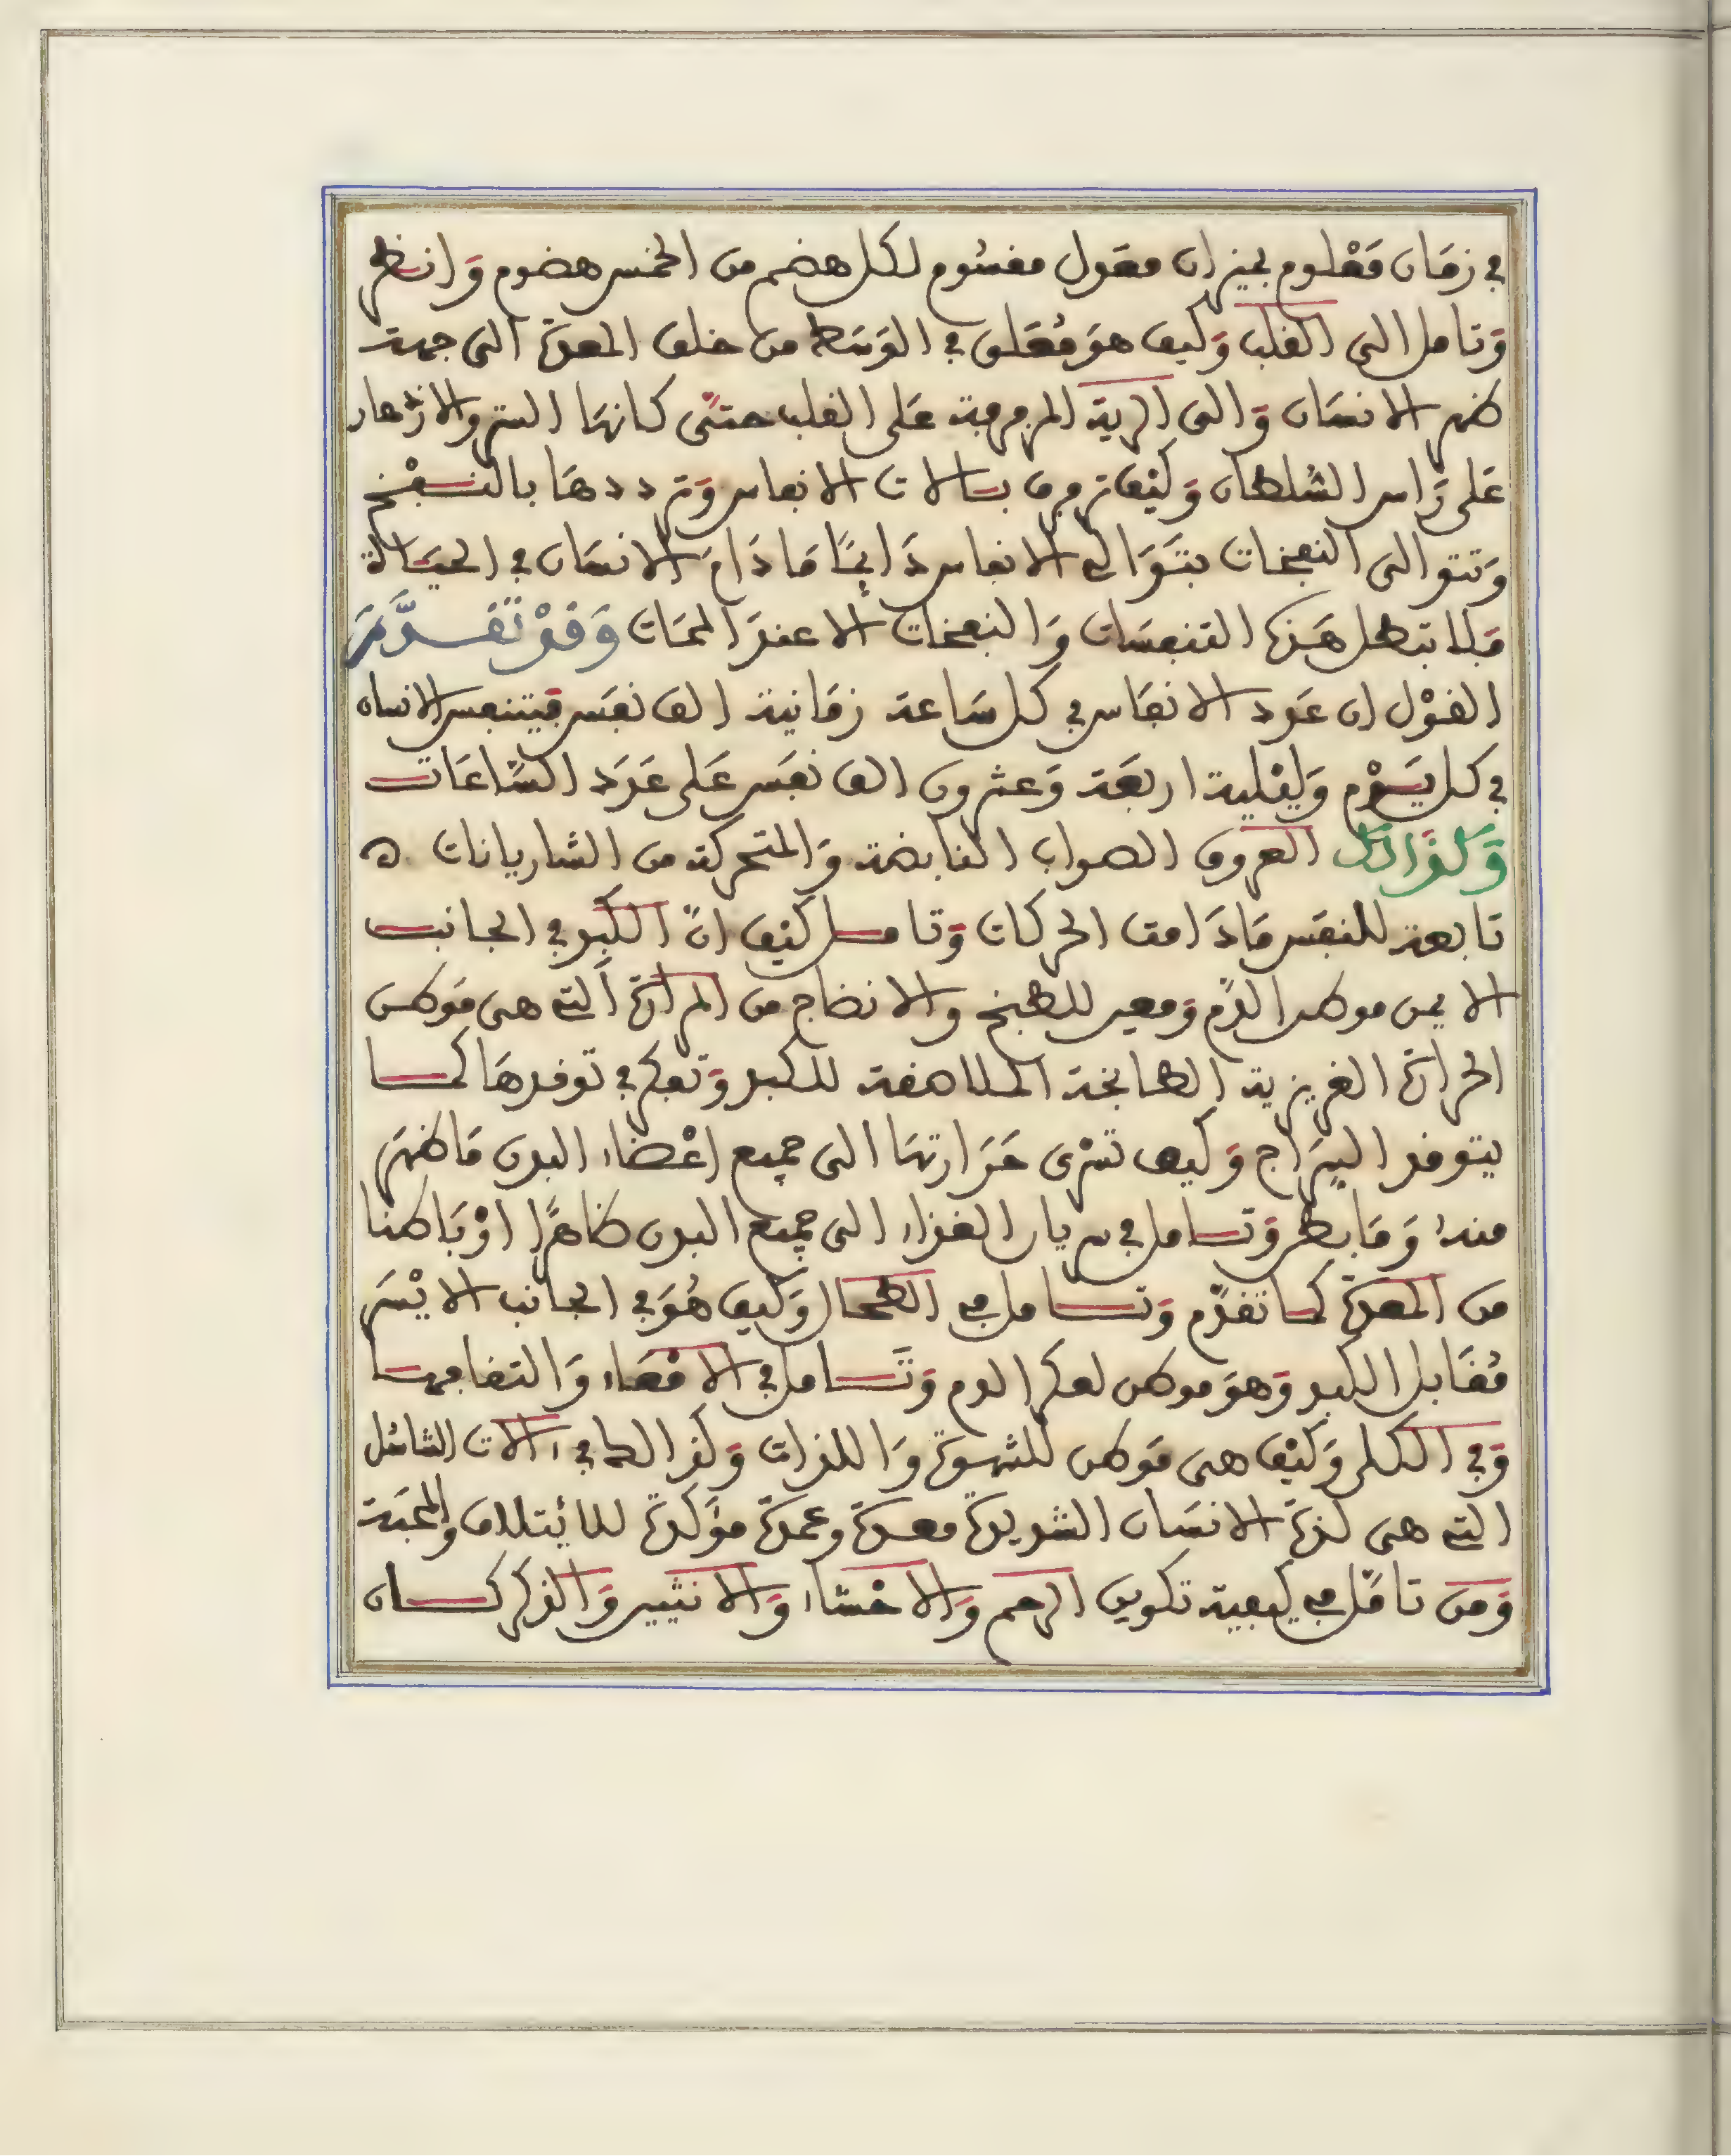 في زمَان مَعْلوم بميزان معَدل مقسُوم لكل هضم من الخمس هضوم وَانظر
وَتامل الى القلب وَكيف هوَ مُعَلق في الوَسَط من خلف المعدة الى جهة
ظهر الانسَان وَالى الرية المرجرجة عَلى القلب حتىّ كانهَا الستر والازهار
عَلى رَاس السُلطان وَكيْف ترجف بئالات الانفاس وَترددهَا بالنفْخ
وَتتوالى النفخات بتَوَالي الانفاس دَائمًا مَا دَامَ الانسَان في الحيَالة
فَلا تبطل هَذه التنفسَات وَالنفخات الا عندَ الممَات وَقدْ تقَدَّمَ
القوْل ان عَدد الانفَاس في كل سَاعة زمَانية الف نفَس فيتنفس الانسان
في كل يَوْم وَليْلية اربعَة وَعشرون الف نفَس عَلى عَدَد السَّاعَات
وَكذَالك العروق الصواب النابضة وَالمتحركة من الشاريانات ه
تابعة للنفَس مَا دَامت الحركات وَتامل كيْف انّ الكبد في الجانب
الايمن موطن الدّم وَمعين للطبخ والانضاج من المرارة التي هى مَوطن
الحرارة الغريزية الطابخة الملاصقة للكبد وَتفكر في توقدهَا كما
يتوقد السِرَاج وَكيف تسْرى حَرَارتهَا الى جميع اعْضاء البدن مَا ظهَر
منهُ وَمَا بطن وَتامل في سريان الغذاء الى جميع البدن ظاهرًا اوْ بَاطنا
من المعدة كما تقدّم وَتامل في الطحال وَكيف هُوَ في الجانب الايْسَر
مُقَابل الكبد وَهوَ موطن لعكر الدم وَتَامل في الامْعَاء وَالتفافهَا
وَفي الكلى وَكيْف هى مَوطن للشهوة وَاللذات وَكذالك في ءالات التناسُل
التي هى لذة الانسَان الشديدة معدة وعمدة مؤَكدة للائتلاف وَالمحبَة
وَمن تامّل في كيفية تكوين الرحم وَالاحْشاء وَالانثيين وَالذكر كان